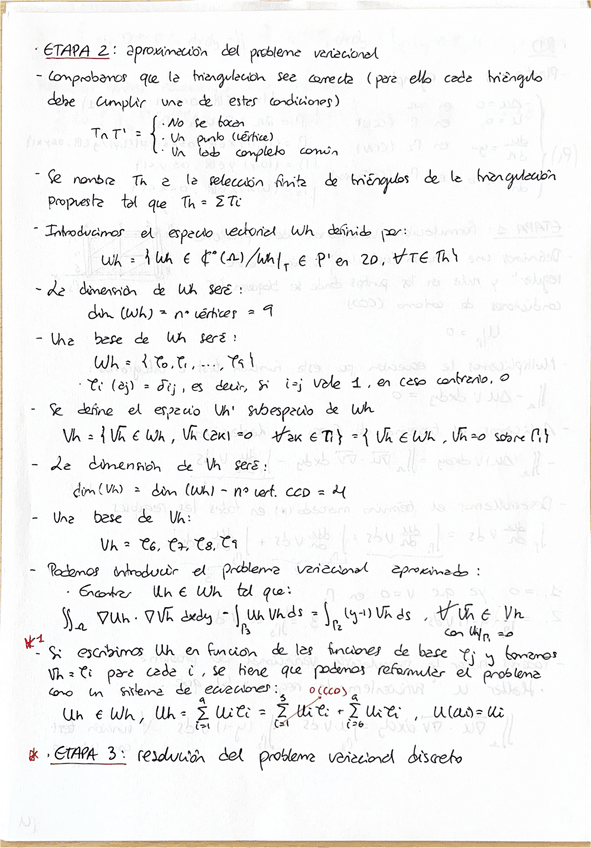 · ETAPA 2: aproximación del problema variacional
- Comprobamos que la triangulación sea correcta (para ello cada triángulo
debe cumplir una de estas condiciones)
T∩T' = { · No se tocan
· Un punto (vértice)
· Un lado completo común
- Se nombra Th a la selección finita de triángulos de la triangulación
propuesta tal que Th = ΣTi
- Introducimos el espacio vectorial Wh definido por:
Wh = {Wh ∈ ℭ⁰(Ω) / Wh|T ∈ P' en 2D, ∀T ∈ Th}
- La dimensión de Wh será:
dim (Wh) = nº vértices = 9
- Una base de Wh será:
Wh = {φ0, φ1, ..., φ9}
· φi (aj) = δij, es decir, si i=j vale 1, en caso contrario, 0
- Se define el espacio Vh' subespacio de Wh
Vh = {Vh ∈ Wh, Vh(ak)=0 ∀ak ∈ Γ1} = {Vh ∈ Wh, Vh=0 sobre Γ1}
- La dimensión de Vh será:
dim(Vh) = dim (Wh) - nº vert. CCD = 4
- Una base de Vh:
Vh = φ6, φ7, φ8, φ9
- Podemos introducir el problema variacional aproximado:
· Encontrar Uh ∈ Wh tal que:
∬Ω ∇Uh · ∇Vh dxdy - ∫Γ3 Uh Vh ds = ∫Γ2 (y-1) Vh ds, ∀ Vh ∈ Vh
con Uh/Γ1 = 0
*1
- Si escribimos Uh en función de las funciones de base φj y tomamos
Vh = φi para cada i, se tiene que podemos reformular el problema
como un sistema de ecuaciones: 0(CCD)
Uh ∈ Wh, Uh = Σ_{i=1}^{9} Ui φi = Σ_{i=1}^{5} Ui φi + Σ_{i=6}^{9} Ui φi , U(ai) = Ui
* · ETAPA 3: resolución del problema variacional discreto